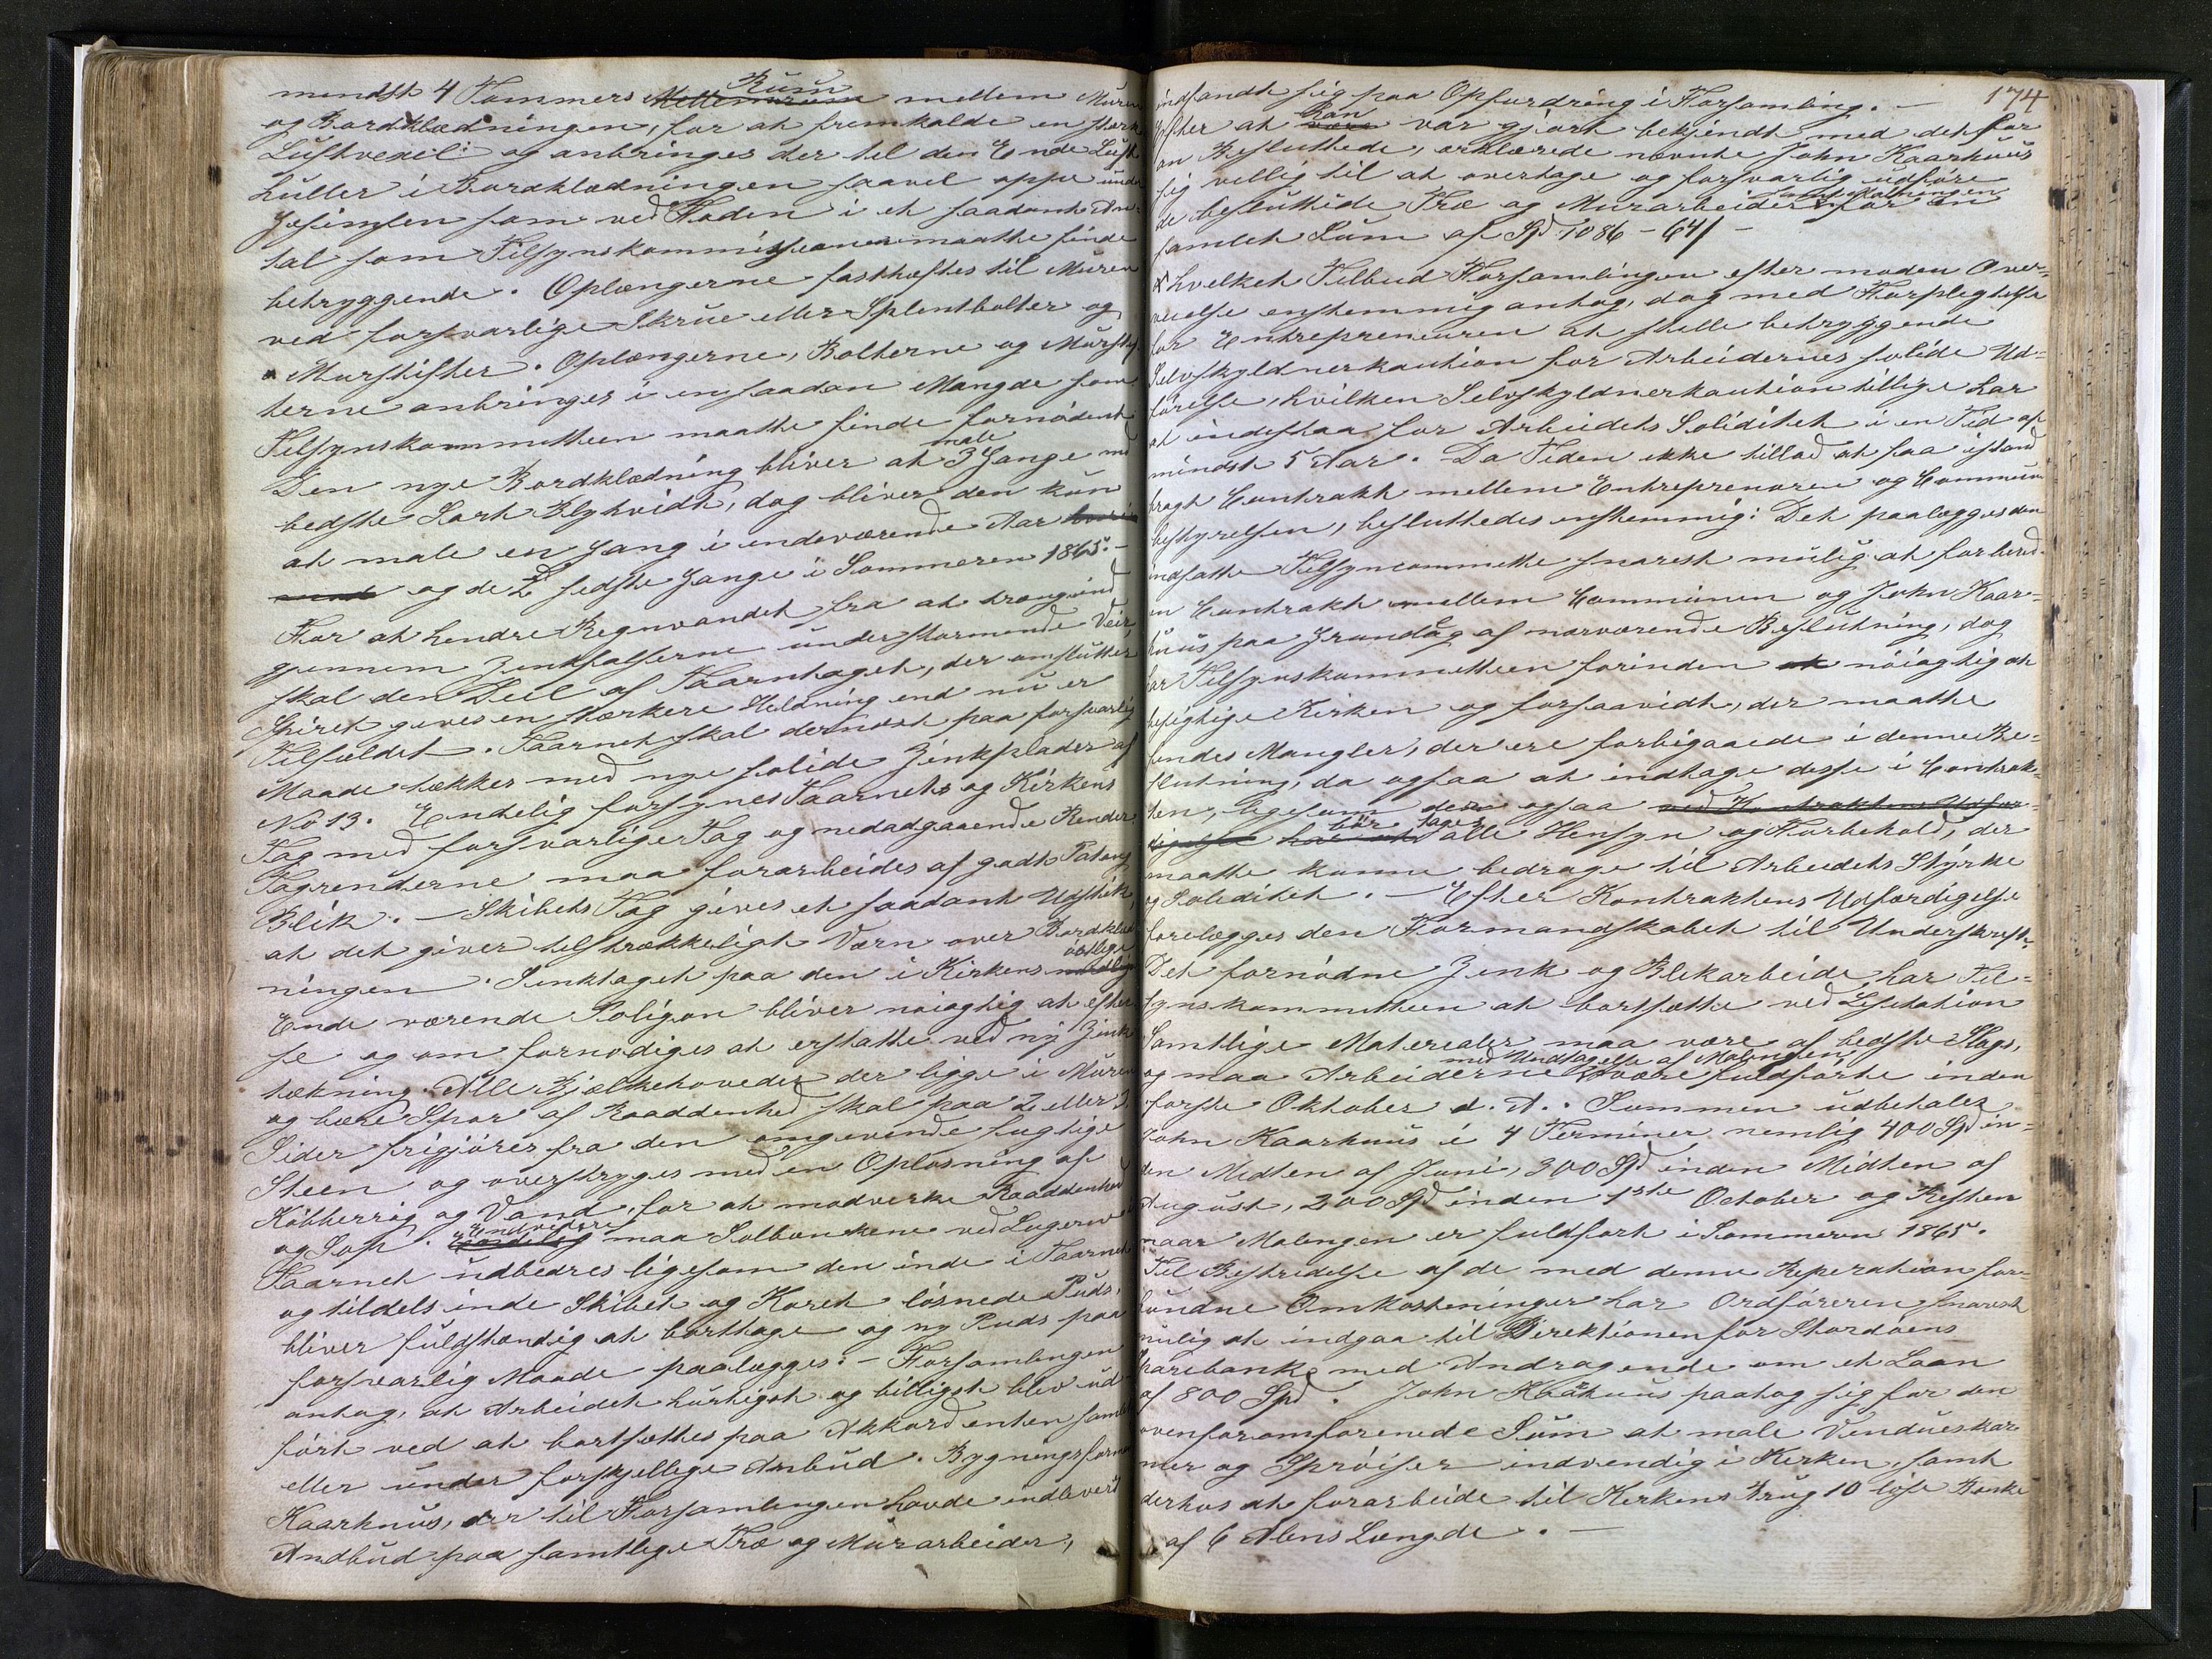 mindst 4 Tommers Rum mellem Muren
og Bordklædningen, for at fremkalde en stærk
Luftvexel: og anbringes der til den Ende Luft
huller i Bordklædningen saavel oppe under
Gesimsen som ved Foden i et saadant An-
tal som Tilsynskommissionen maatte finde
betryggende. Oplængerne fasthæftes til Muren
ved forsvarlige Skrue eller Splentbolter og
Murstifter. Oplængerne, Bolterne og Murstif
terne anbringes i en saadan Mængde som
Tilsynskommitteen maatte finde fornödent
Den nye Bordklædning bliver at male 3 Gange med
bedste Sort Blyhvidt, dog bliver den kun
at male en Gang i indeværende Aar
og de 2 sidste Gange i Sommeren 1865.-
For at hindre Regnvandet fra at trænge ind
gjennem Zinkfalserne under stormende Veir,
skal den Deel af Taarntaget, der omslutter
Spiret gives en stærkere Heldning end nu er
Tilfældet. Taarnet skal dernæst paa forsvarlig
Maade tækkes med nye solide Zinkplader af
No 13. Endelig forsynes Taarnets og Kirkens
Tag med forsvarlige Tag og nedadgaaende Render
Tagrenderne maa forarbeides af godt Patent
Blik. - Skibets Tag gives et saadant Udstik
at det giver tilstrækkeligt Værn over Bordklæd
ningen. Zinktaget paa den i Kirkens östlige
Ende værende Poligon bliver nöiagtig at efter
se og om fornödiges at erstatte ved ny Zink
tækning. Alle Bjælkehoveder der ligge i Muren
og bære Spor af Raaddenhed skal paa 2 eller 3
Sider frigjöres fra den omgivende fugtige
Steen og overstryges med en Oplösning af
Kobberrög og Vand, for at modvirke Raaddenhed
og Sop. Endvidere maa Solbænkene ved Lugerne
Taarnet udbedres ligesom den inde i Taarnet
og tildels inde Skibet og Koret lösnede Puds,
bliver fuldstændig at borttage og ny Puds paa
forsvarlig Maade paalægges. - Forsamlingen
antog, at Arbeidet hurtigst og billigst blev ud-
fört ved at bortsættes paa Akkord enten samlet
eller under forskjellige Anbud. Bygningsform
Kaarhuus, der til Forsamlingen havde indleveret
Andbud paa samtlige Træ og Murarbeider,
174
indfandt sig paa Opfordring i Forsamling. -
Efter at han var gjort bekjendt med det for
an Besluttede, erklærede nævnte John Kaarhuus
sig villig til at overtage og forsvarlig udföre
de besluttede Træ og Murarbeider for en
samlet Sum af Spd 1086 - 64/ -
hvilket Tilbud Forsamlingen efter moden Over-
veielse enstemmig antog, dog med Forpligtelse
for Entrepreneuren at stille betryggende
Selvskyldnerkaution for Arbeidernes solide Ud-
förelse, hvilken Selvskyldnerkaution tillige har
at indestaa for Arbeidets Soliditet i en Tid af
mindst 5 Aar. Da Tiden ikke tillod at faa istand
bragt Contrakt mellem Entreprenoren og Commune
bestyrelsen, besluttedes enstemmig: Det paalægges den
indsatte Tilsyncommitte snarest mulig at forbered
en Contrakt mellem Communen og John Kaar-
huus paa Grundlag af nærværende Beslutning, dog
har Tilsynskommitteen forinden nöiagtig at
besigtige Kirken og forsaavidt, der maatte
findes Mangler, der ere forbigaaede i denne Be-
slutning, da ogsaa at indtage disse i Contrak-
ten, ligesom der ogsaa
bör tages alle Hensyn og Forbehold, der
maatte kunne bedrage til Arbeidets Styrke
og Soliditet. - Efter Kontraktens Udfærdigelse
forelægges den Formandskabet til Underskrift.
Det fornödne Zink og Blikarbeide har Til-
synskommitteen at bortsætte ved Lisitation
Samtlige Materialer maa være af bedste Slags,
og maa Arbeiderne med Undtagelse af Malingen være fuldförte inden
förste Oktober d. A. Summen udbetales
John Kaarhuus i 4 Terminer nemlig 400 Spd in-
den Midten af Juni, 300 Spd inden Midten af
August, 200 Spd inden 1ste October og Resten
naar Malingen er fuldfört i Sommeren 1865.
Til Bestridelse af de med denne Reperation for-
bundne Omkostninger har Ordföreren snarest
mulig at indgaa til Direktionen for Stordöens
Sparebank med Andragende om et Laan
af 800 Spd. John Kaarhuus paatog sig for den
ovenforomforenede Sum at male Vindueskar
mer og Spröiser indvendig i Kirken, samt
derhos at forarbeide til Kirkens Brug 10 löse Bænke
af 6 Alens Længde. -